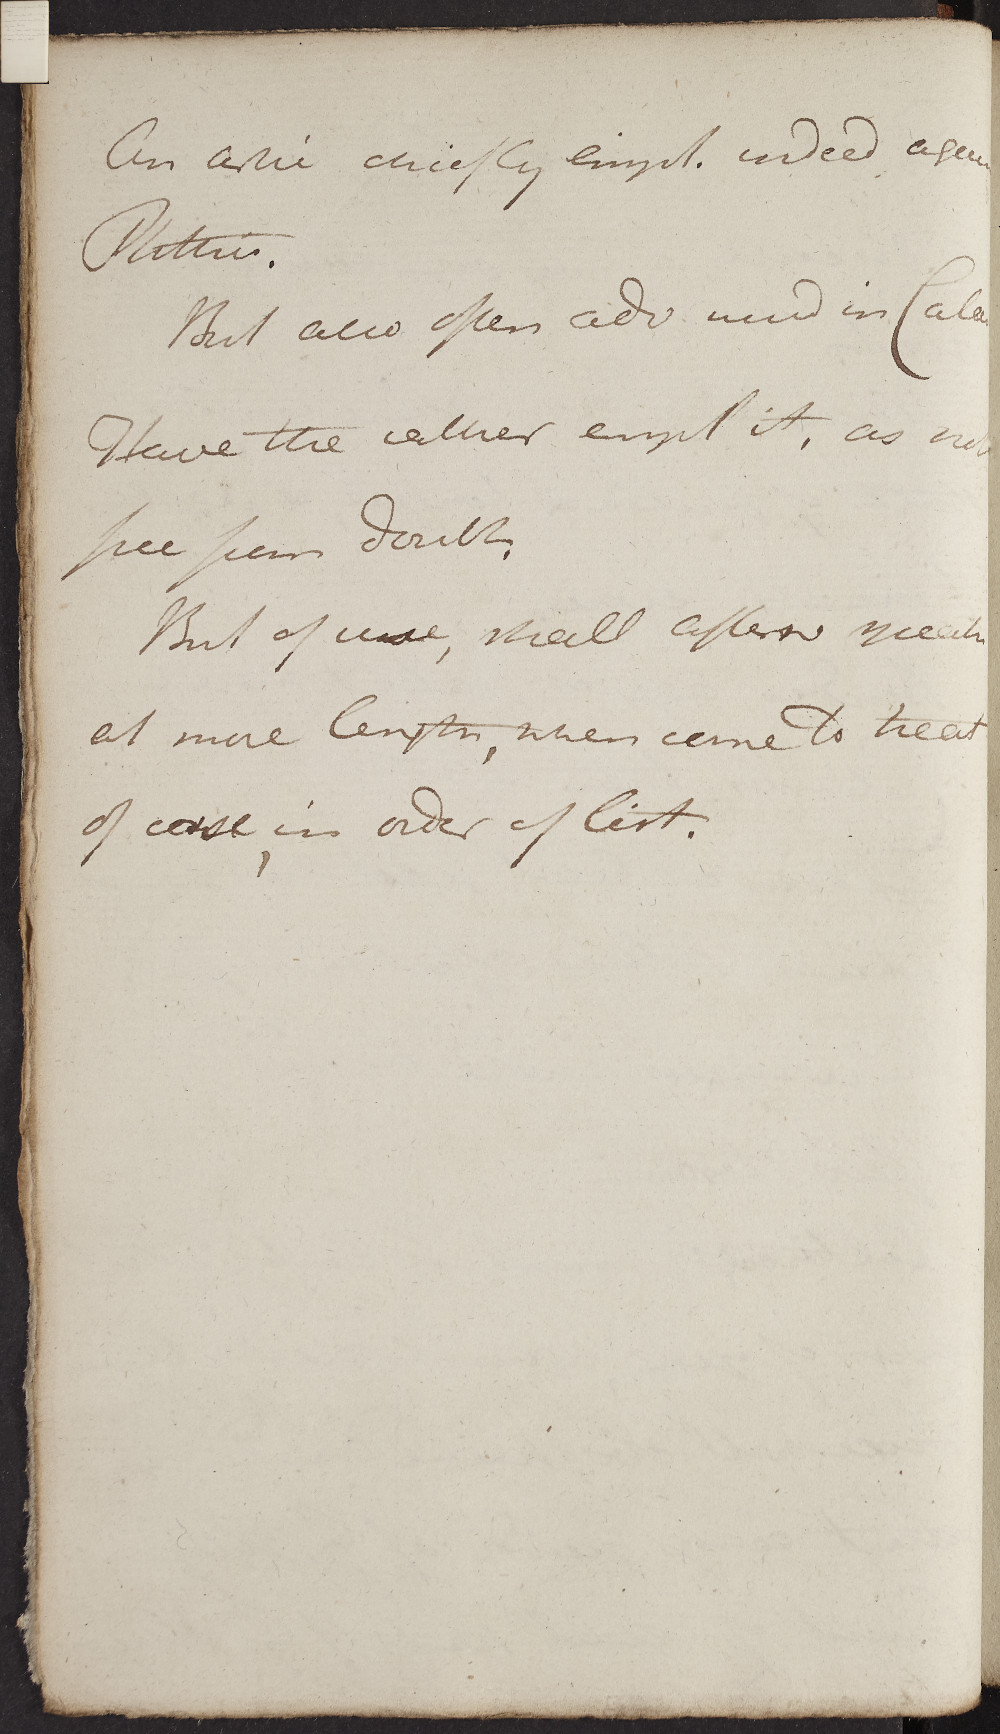 An artic chiefly empl. indeed again
Phthis.
But also often adv used in Cata
Have the rather empl it, as not
free from doubt.
But of use, shall afterw speak
at more length, when come to treat
of case, in order of list.